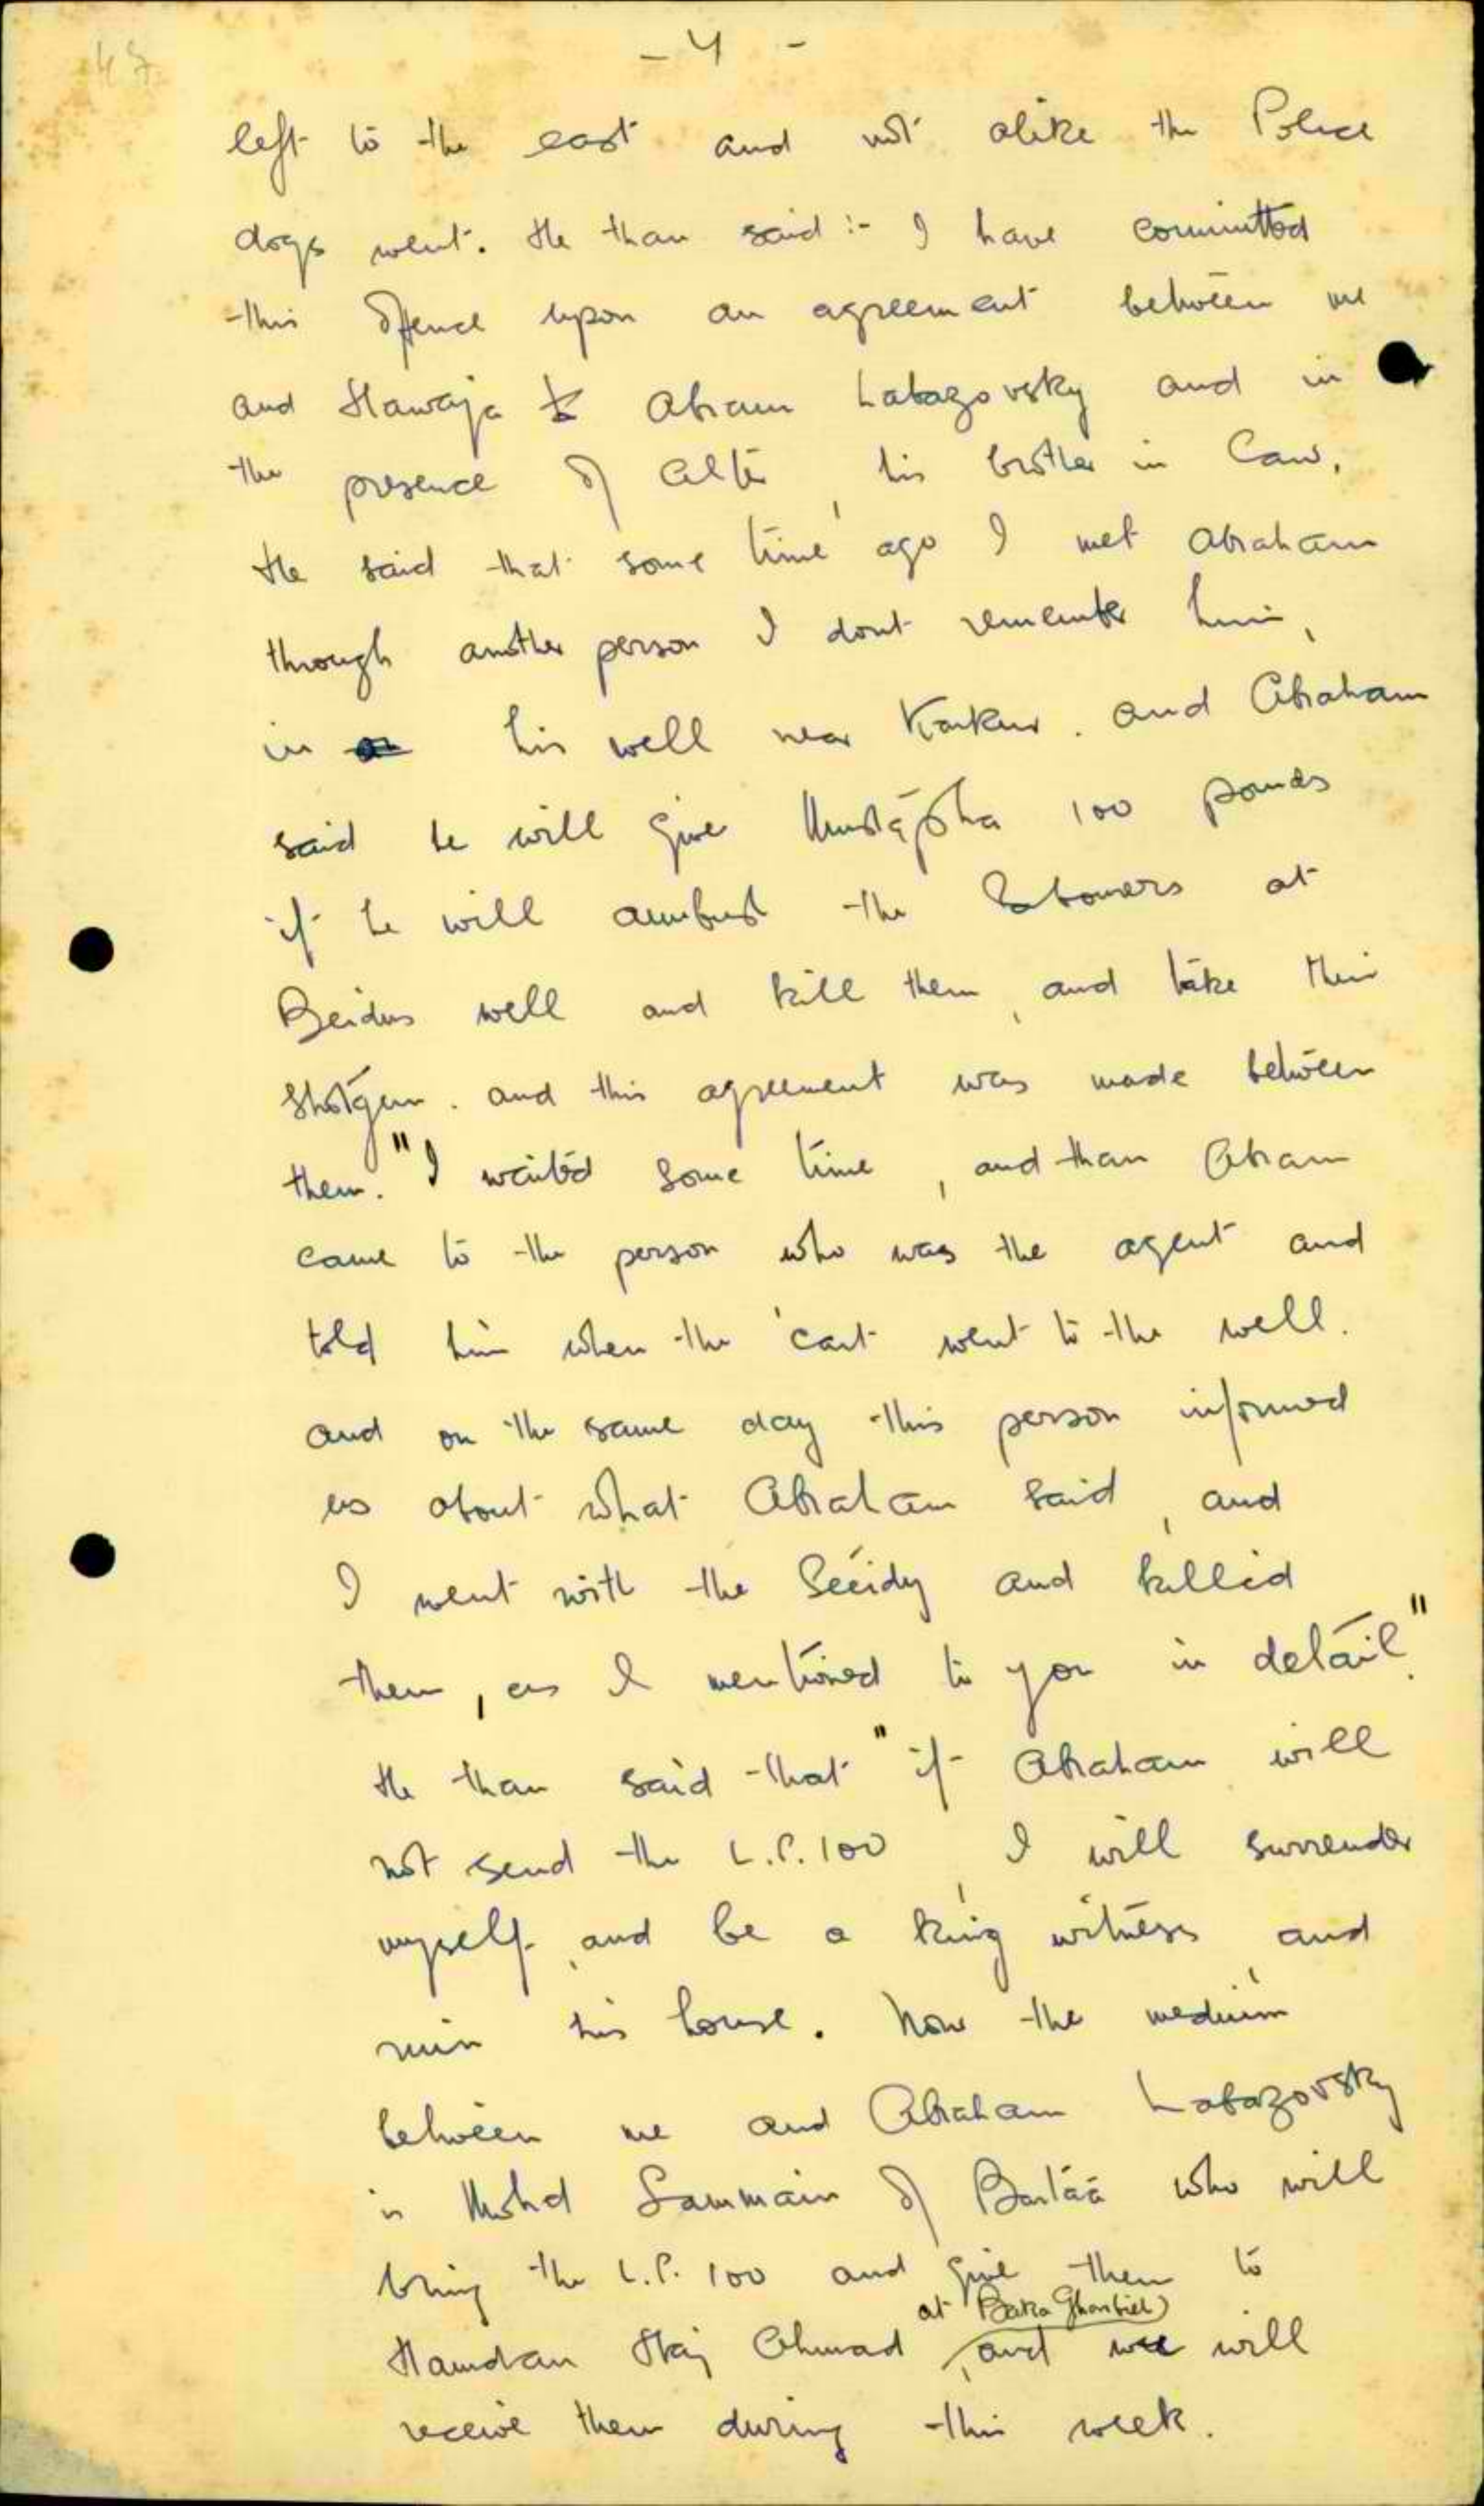 47
- 4 -
left to the east and not alike the Police
dogs went. He than said :- I have committed
this offence upon an agreement between me
and Hawaja Abram Labazovsky and in
the presence of Alter, his brother in law.
He said that some time ago I met Abraham
through another person I dont remember him,
in his well near Karkur. and Abraham
said he will give Mustapha 100 pounds
if he will ambush the labourers at
Beidus well and kill them, and take their
shotgun. and this agreement was made between
them. "I waited some time, and than Abram
came to the person who was the agent and
told him when the cart went to the well.
and on the same day this person informed
us about what Abraham said, and
I went with the Seeidy and killed
them, as I mentioned to you in detail."
He than said that "if Abraham will
not send the L.P.100, I will surrender
myself, and be a king witness, and
ruin his house. Now the medium
between me and Abraham Labazovsky
is Mohd Sammain of Bartáá who will
bring the L.P. 100 and give them to
at Baka Gharbieh
Hamdan Haj Ahmad, and we will
receive them during this week.